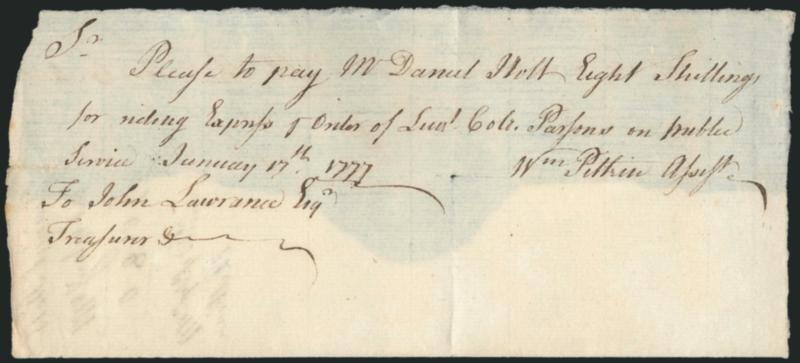 Sr
Please to pay Mr Daniel Holt Eight Shillings
for riding Express p Order of Lieut. Colo. Parsons on publick
Service January 17th. 1777 Wm Pitkin Assist
To John Lawrance Esqr
Treasurer &c